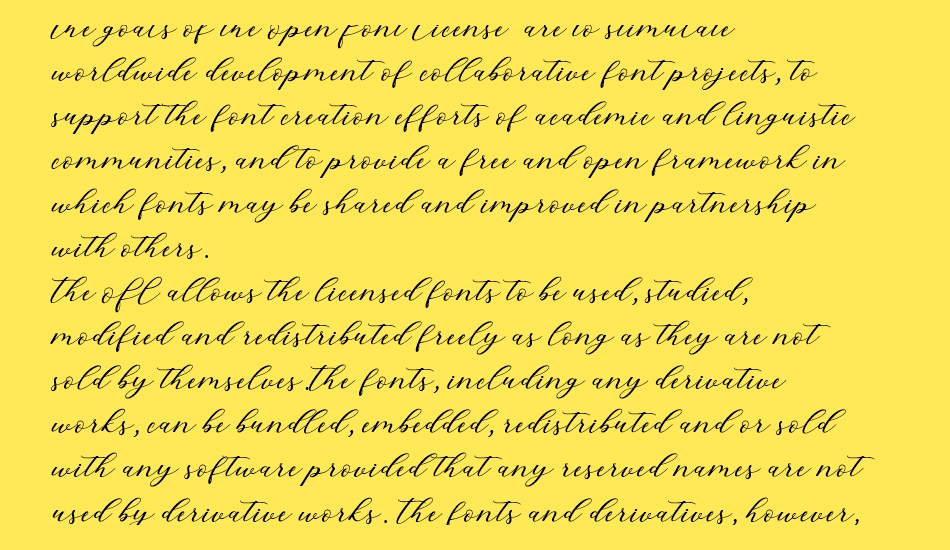 the goals of the open font License are to stimulate
worldwide development of collaborative font projects, to
support the font creation efforts of academic and linguistic
communities, and to provide a free and open framework in
which fonts may be shared and improved in partnership
with others.
the OFL allows the licensed fonts to be used, studied,
modified and redistributed freely as long as they are not
sold by themselves.The fonts, including any derivative
works, can be bundled, embedded, redistributed and or sold
with any software provided that any reserved names are not
used by derivative works. The fonts and derivatives, however,